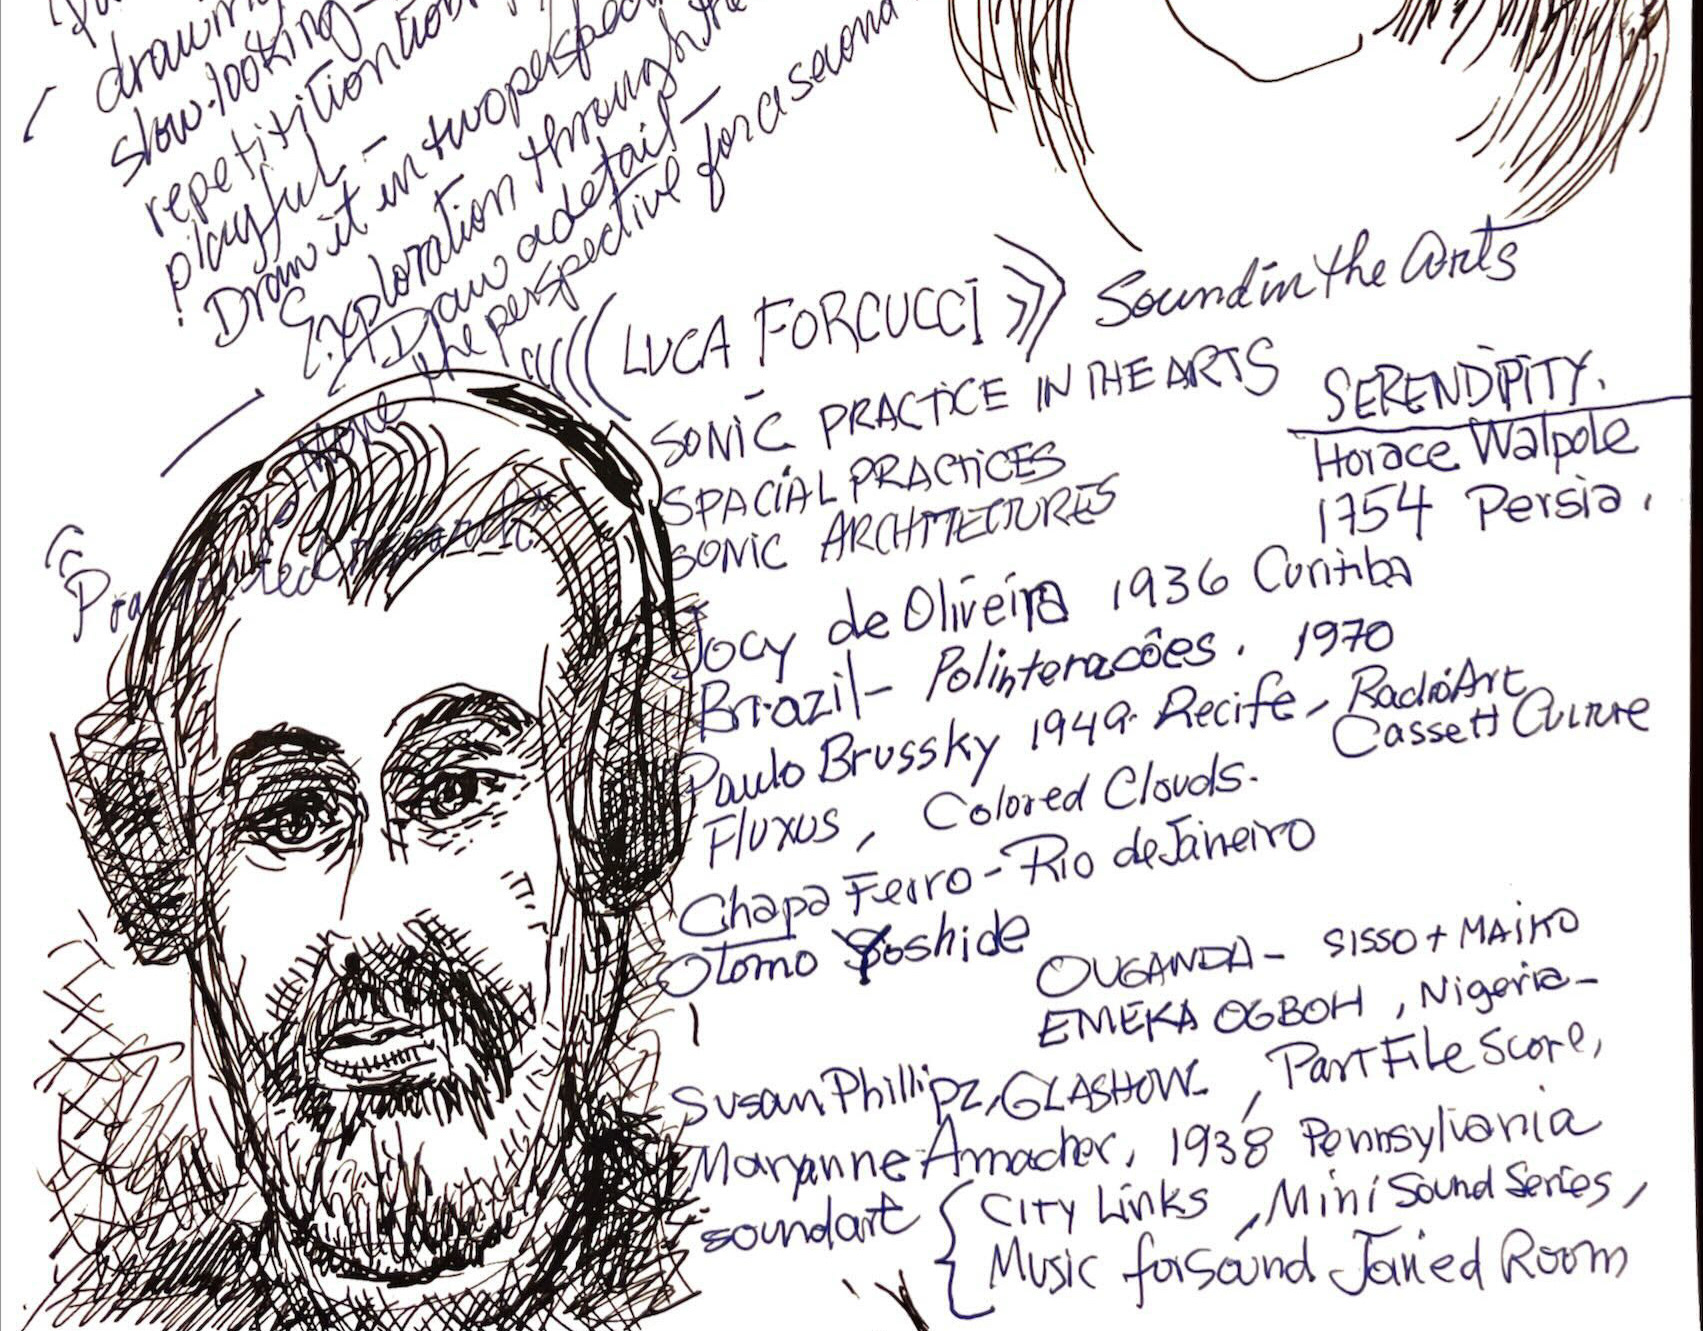 drawing
slow-looking-
repetitition
playful -
Draw it in two perspec
Exploration through the
Draw a detail -
the perspective for a second
More
(LUCA FORCUCCI) Sound in the arts
SONIC PRACTICE IN THE ARTS
SPACIAL PRACTICES
SONIC ARCHITECTURES
SERENDIPITY.
Horace Walpole
1754 Persia.
Jocy de Oliveira 1936 Curitiba
Brazil - Polinteracões. 1970
Paulo Brussky 1949. Recife, RadioArt
Cassett Culture
Fluxus, Colored Clouds.
Chapa Ferro - Rio de Janeiro
Otomo Yoshide
OUGANDA - SISSO + MAIKO
EMEKA OGBOH, Nigeria -
Susan Phillipz, GLASHOW, Part File Score,
Maryanne Amacher, 1938 Pennsylvania
soundart { City Links, Mini Sound Series,
Music for Sound Joined Room